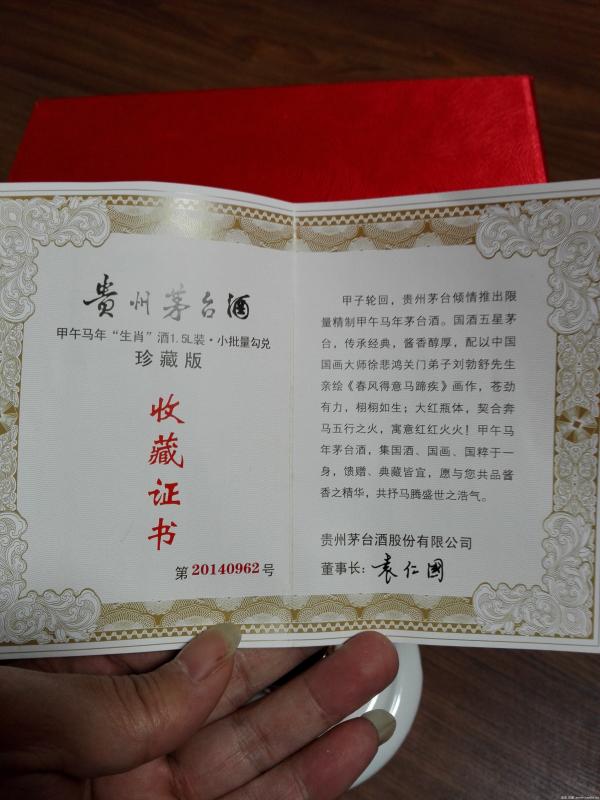 贵州茅台酒
甲午马年“生肖”酒1.5L装·小批量勾兑
珍藏版
收
藏
证
书
第20140962号
甲子轮回，贵州茅台倾情推出限
量精制甲午马年茅台酒。国酒五星茅
台，传承经典，酱香醇厚，配以中国
国画大师徐悲鸿关门弟子刘勃舒先生
亲绘《春风得意马蹄疾》画作，苍劲
有力，栩栩如生；大红瓶体，契合奔
马五行之火，寓意红红火火！甲午马
年茅台酒，集国酒、国画、国粹于一
身，馈赠、典藏皆宜，愿与您共品酱
香之精华，共抒马腾盛世之浩气。
贵州茅台酒股份有限公司
董事长：袁仁國